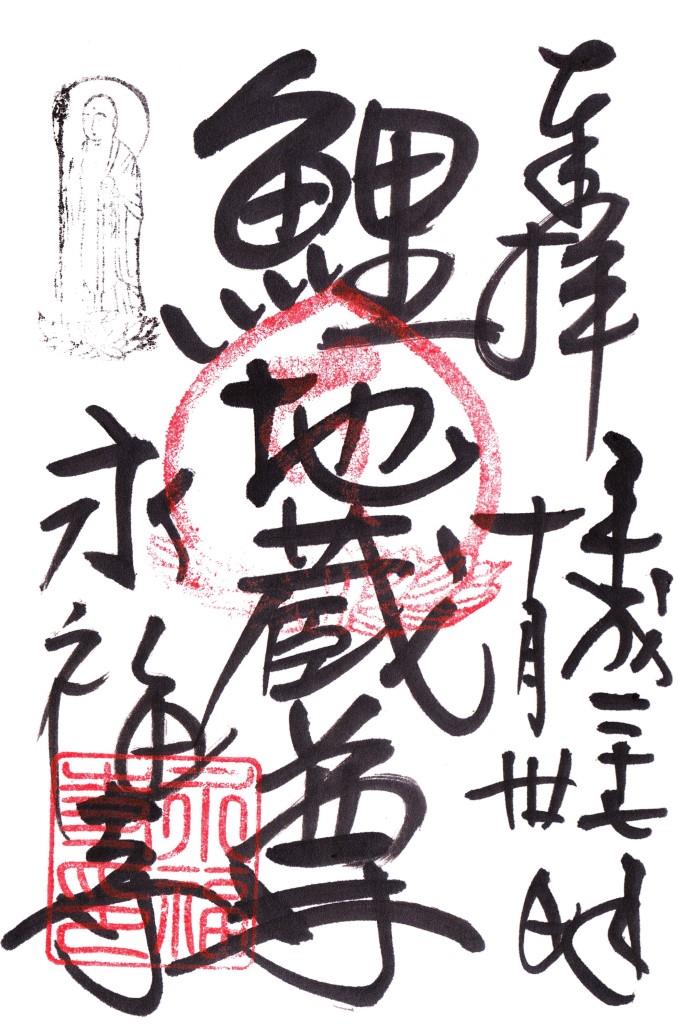 奉拝
平成二十七年
十月卅日
鯉地蔵尊
永福寺
永福寺印